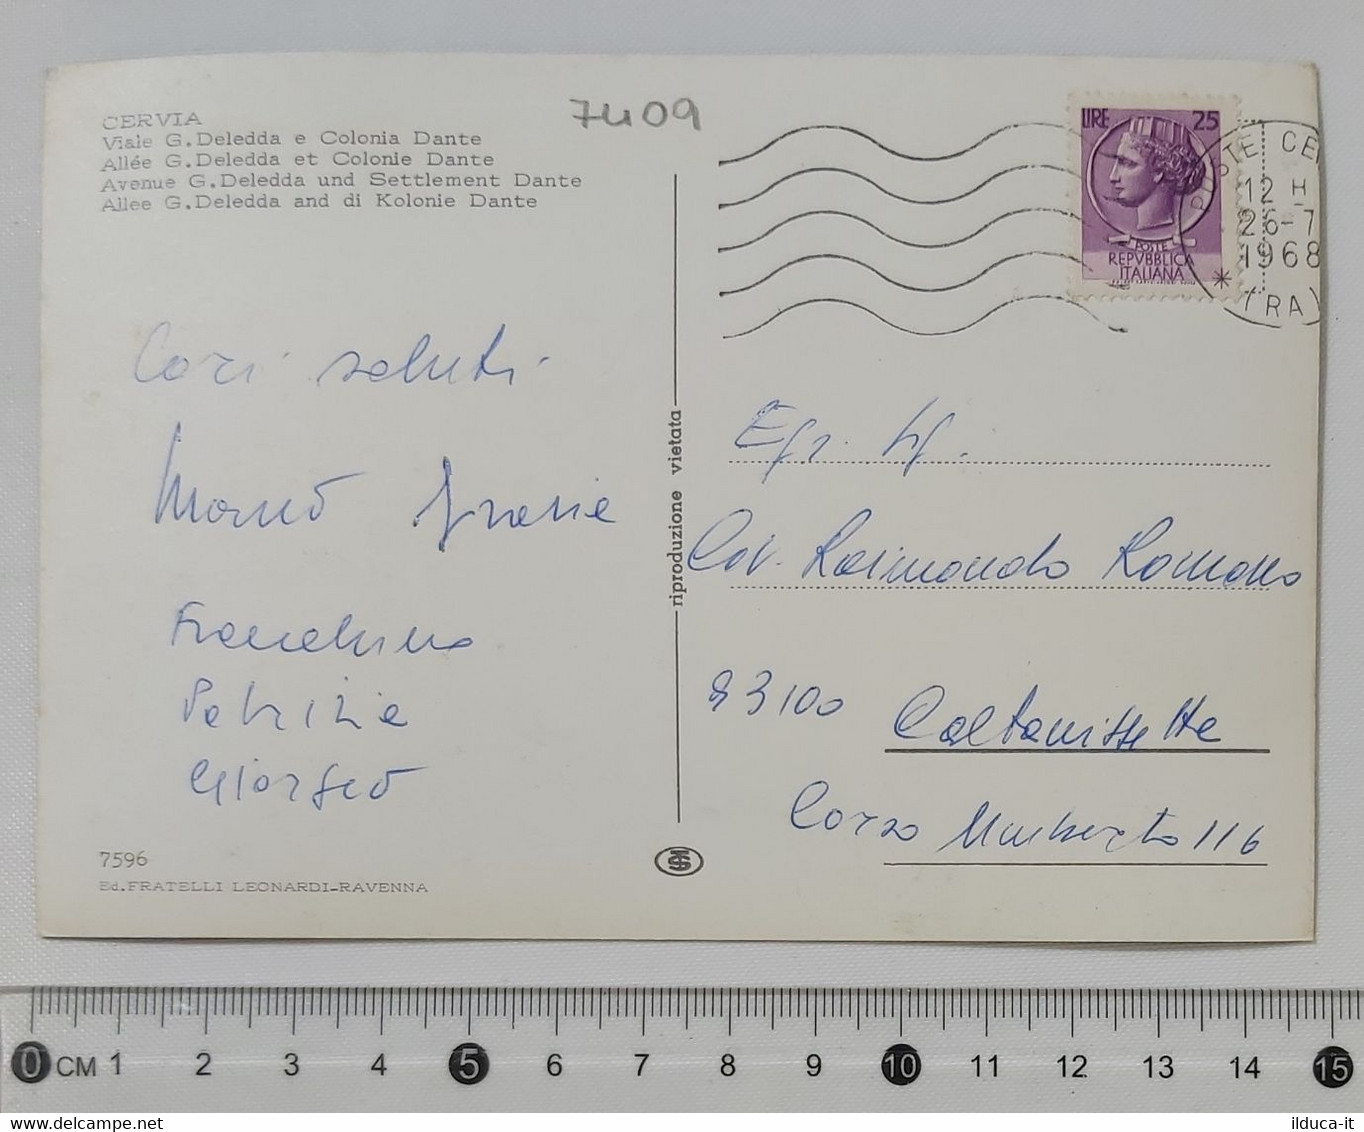 CERVIA
Viale G.Deledda e Colonia Dante
Allée G.Deledda et Colonie Dante
Avenue G.Deledda und Settlement Dante
Allee G.Deledda and di Kolonie Dante
7409
LIRE 25
POSTE
REPVBBLICA
ITALIANA
POSTE CER
12 H
26-7
1968
(RA)
Cari saluti
Franchino
Patrizia
Giorgio
7596
Ed.FRATELLI LEONARDI-RAVENNA
riproduzione vietata
Egr. Sig.
Cav. Raimondo Romano
93100 Caltanissetta
Corso Umberto 116
0 CM 1 2 3 4 5 6 7 8 9 10 11 12 13 14 15
ilduca-it